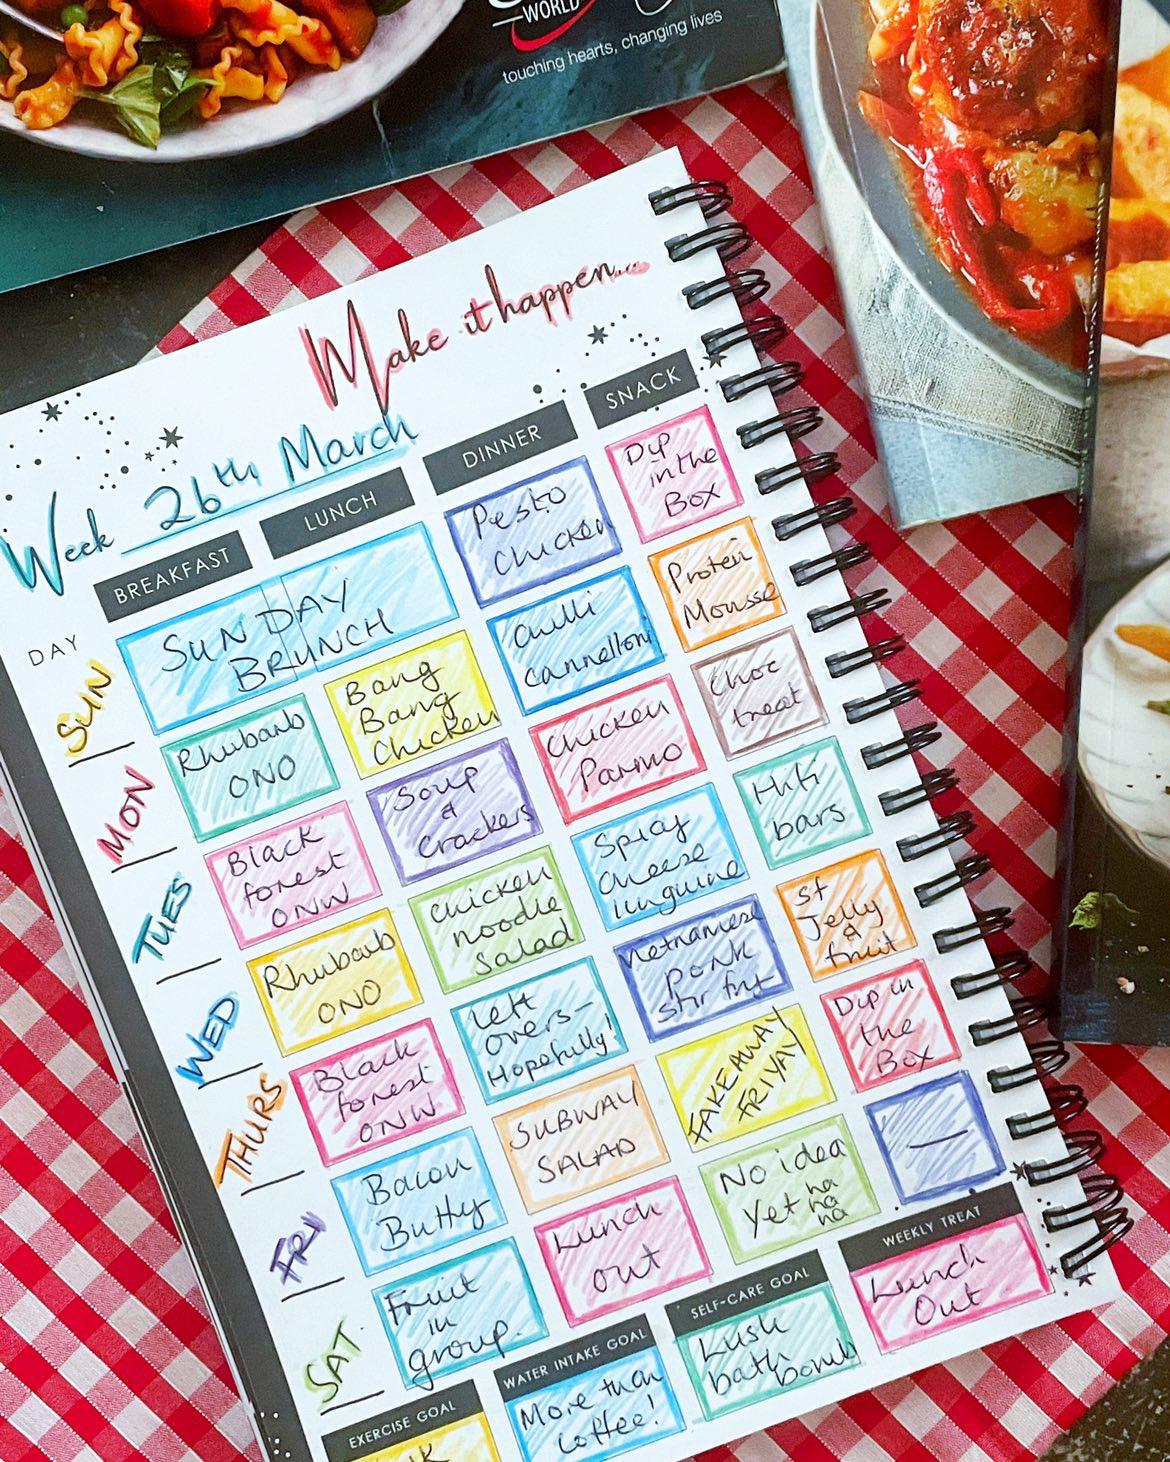 WORLD
touching hearts, changing lives
Make it happen...
Week 26th March
DAY
BREAKFAST
LUNCH
DINNER
SNACK
SUN
SUNDAY
BRUNCH
Pesto
Chicken
Dip
in the
Box
MON
Rhubarb
ONO
Bang
Bang
Chicken
Chilli
Cannelloni
Protein
Mousse
TUES
Black
forest
ONW
Soup
&
Crackers
Chicken
Parmo
Choc
treat
WED
Rhubarb
ONO
Chicken
noodle
Salad
Spicy
Cheese
linguine
Hifi
bars
THURS
Black
forest
ONW
Left
overs-
Hopefully!
Vietnamese
Pork
stir fry
sf
Jelly
&
fruit
FRI
Bacon
Butty
SUBWAY
SALAD
FAKEAWAY
FRIYAY
Dip in
the
Box
SAT
Fruit
in
group.
Lunch
out
No idea
Yet ha
ha
ha
—
EXERCISE GOAL
WATER INTAKE GOAL
More than
coffee!
SELF-CARE GOAL
Lush
bath bomb
WEEKLY TREAT
Lunch
Out